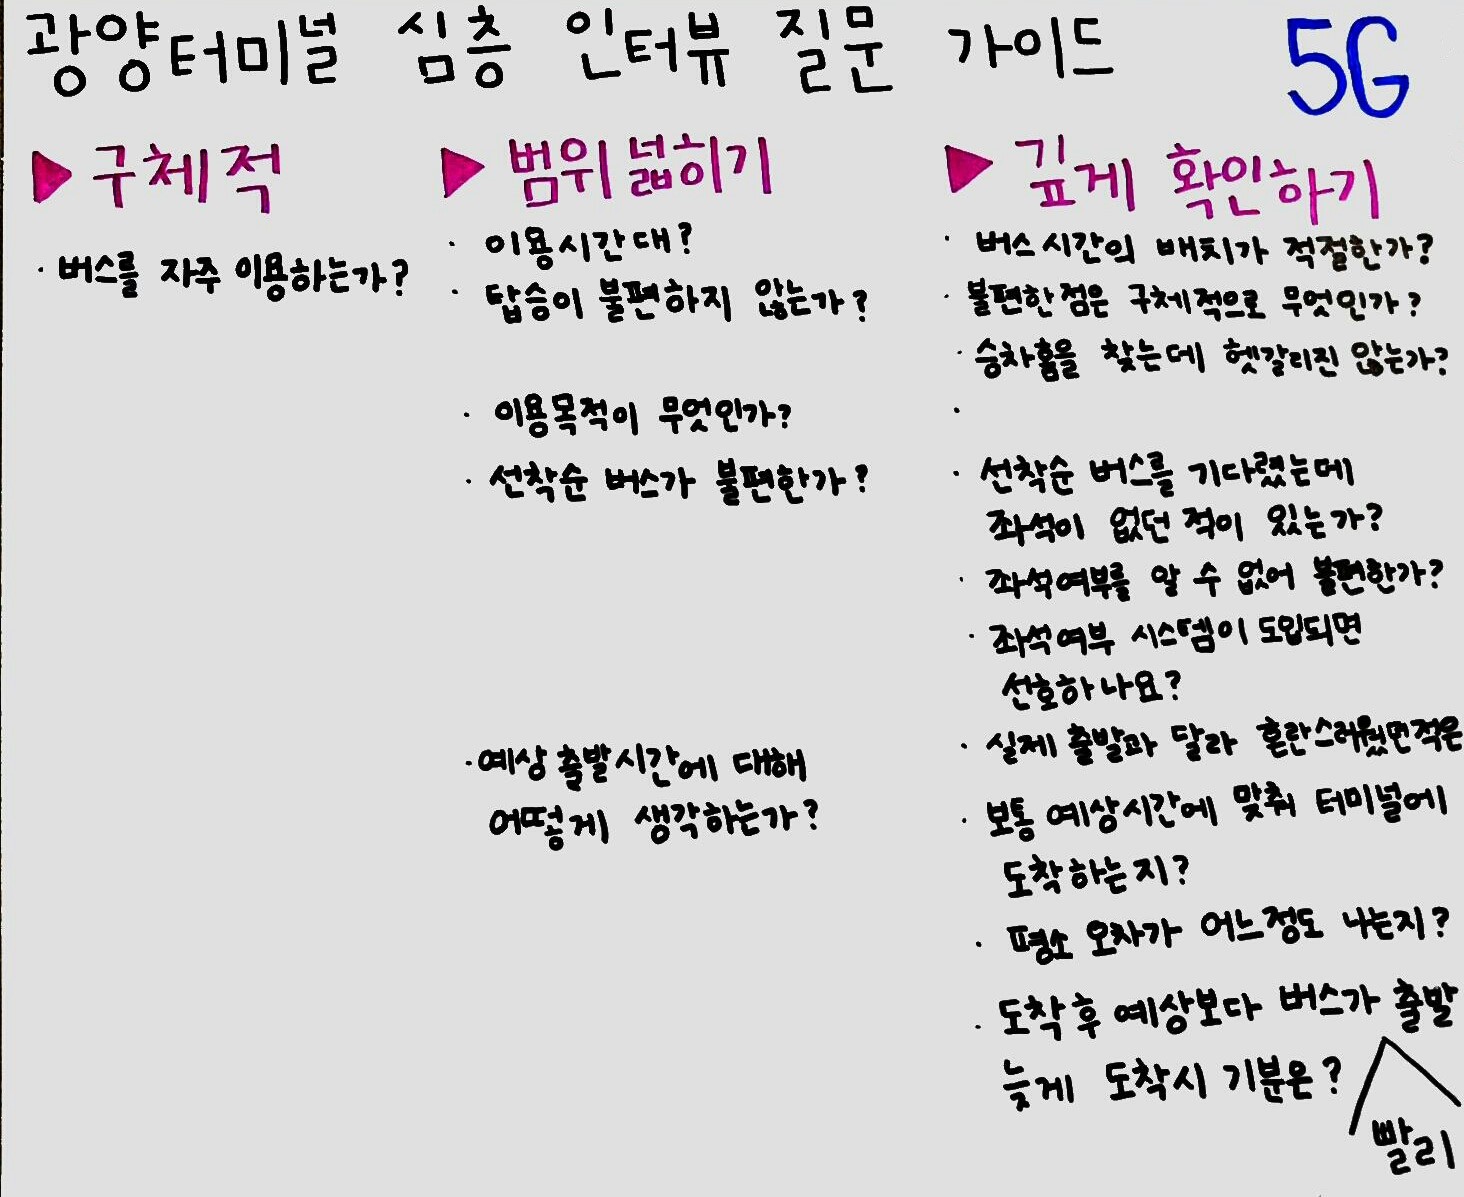 광양터미널 심층 인터뷰 질문 가이드 5G
▶ 구체적
· 버스를 자주 이용하는가?
▶ 범위 넓히기
· 이용시간대?
· 탑승이 불편하지 않는가?
· 이용목적이 무엇인가?
· 선착순 버스가 불편한가?
· 예상 출발시간에 대해
어떻게 생각하는가?
▶ 깊게 확인하기
· 버스시간의 배치가 적절한가?
· 불편한점은 구체적으로 무엇인가?
· 승차홈을 찾는데 헷갈리진 않는가?
·
· 선착순 버스를 기다렸는데
좌석이 없던 적이 있는가?
· 좌석여부를 알 수 없어 불편한가?
· 좌석여부 시스템이 도입되면
선호하나요?
· 실제 출발과 달라 혼란스러웠던적은
· 보통 예상시간에 맞춰 터미널에
도착하는지?
· 평소 오차가 어느정도 나는지?
· 도착후 예상보다 버스가 출발
늦게 도착시 기분은?
빨리